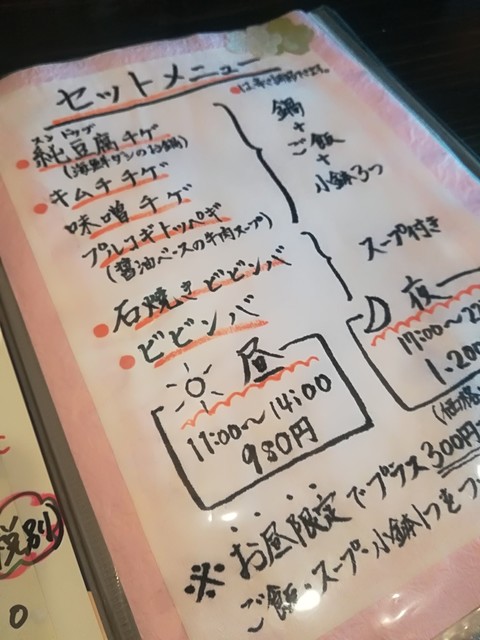 セットメニュー
スンドゥブ
純豆腐チゲ
キムチチゲ
味噌チゲ
プルコギトッペギ
(醤油ベースの牛肉スープ)
石焼きビビンバ
ビビンバ
鍋
+
ご飯
+
小鉢3つ
スープ付き
昼
11:00～14:00
980円
夜
17:00～2
1.200
(価格
※お昼限定でプラス300円
ご飯・スープ・小鉢1つをつ
税別
0